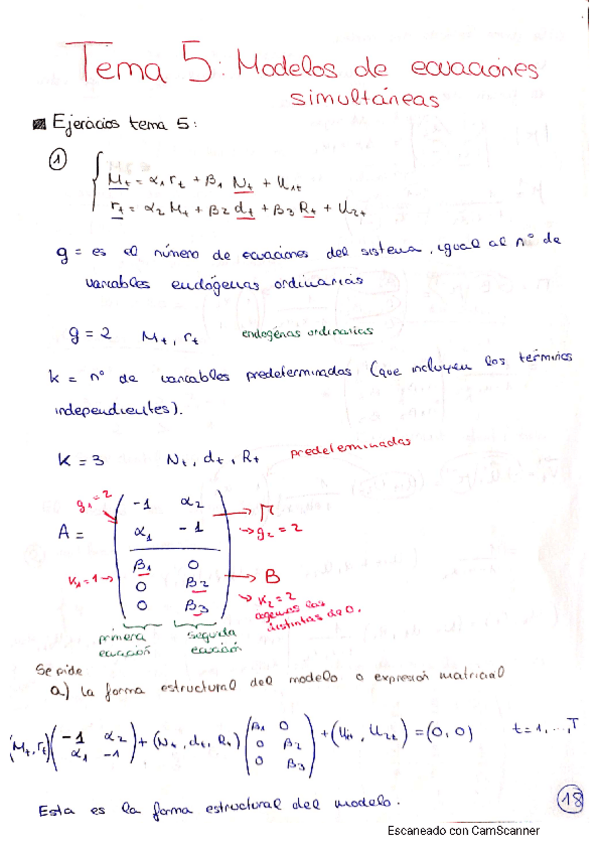 Tema 5: Modelos de ecuaciones
simultáneas
Ejercicios tema 5:
① { Mt = α1 rt + β1 Nt + U1t
rt = α2 Mt + β2 dt + β3 Rt + U2t
g = es el número de ecuaciones del sistema, igual al nº de
variables endógenas ordinarias
g = 2 Mt, rt endogénas ordinarias
k = nº de variables predeterminadas (que incluyen los términos
independientes).
k = 3 Nt, dt, Rt predeterminadas
g1 = 2 -1 α2 → Γ
A = α1 -1 → g2 = 2
k1 = 1 → β1 0
0 β2 → B
0 β3 → k2 = 2
algunas las
distintas de 0.
primera ecuación segunda ecuación
Se pide
a) la forma estructural del modelo o expresión matricial
(Mt, rt) (-1 α2 / α1 -1) + (Nt, dt, Rt) (β1 0 / 0 β2 / 0 β3) + (U1t, U2t) = (0, 0) t = 1, ..., T
Esta es la forma estructural del modelo.
18
Escaneado con CamScanner